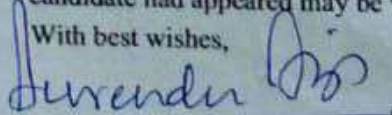 candidate had appeared may be
With best wishes,
Surender